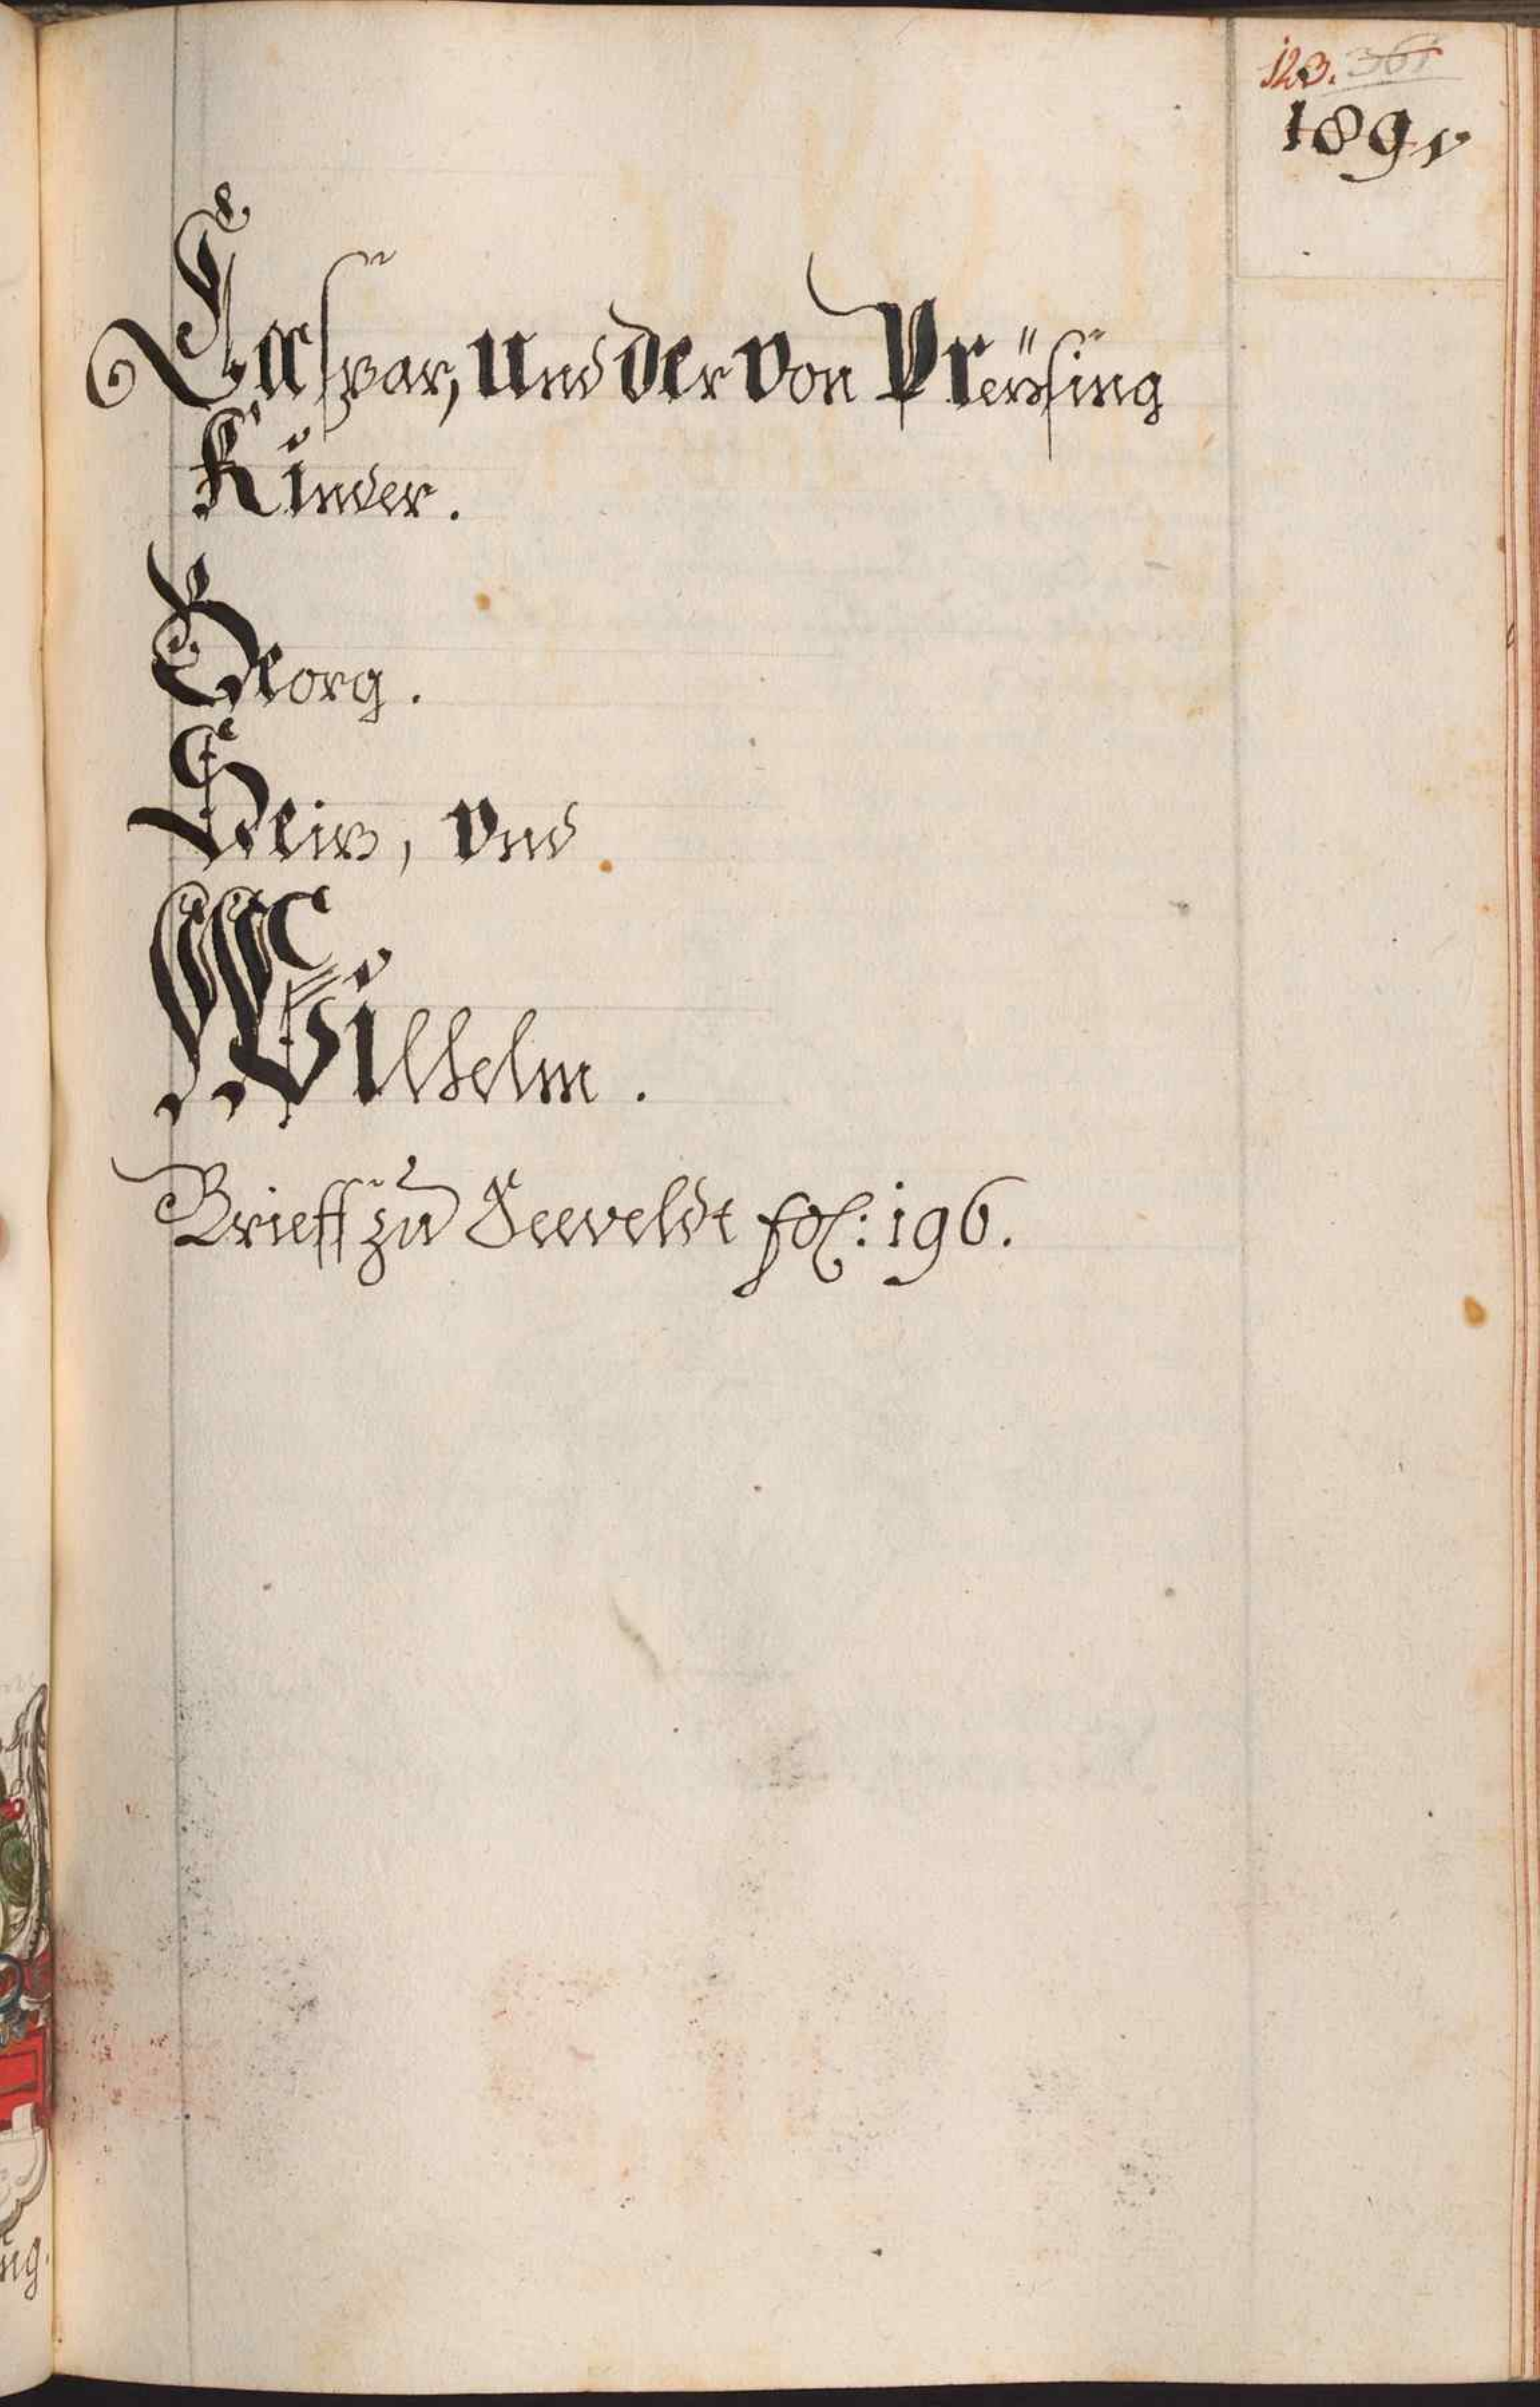 123. 361
189
Caspar, und der von Preÿsing
Kinder.
Georg.
Seiz, vnd
Wilhelm.
Brieff zu Seeveldt fol: 196.